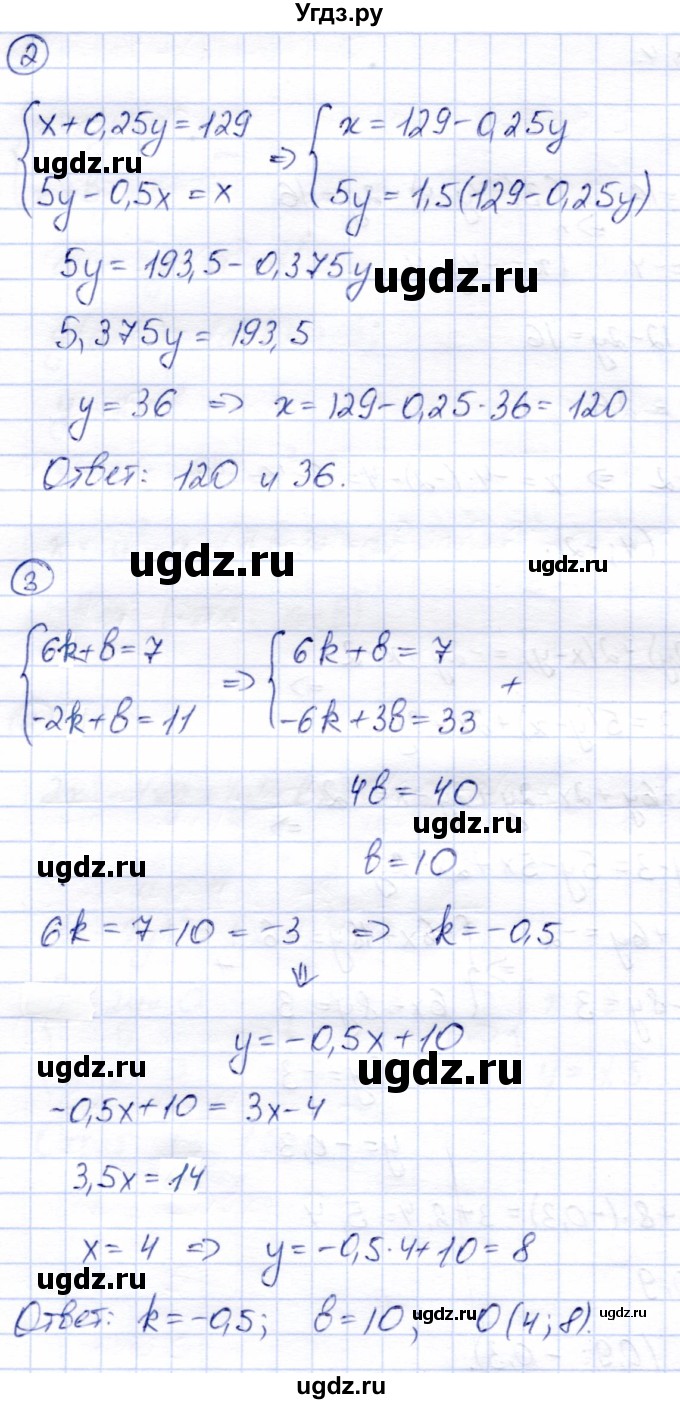 Угдз.ру
2
x+0,25y=129 => x=129-0,25y
ugdz.ru
5y-0,5x=x 5y=1,5(129-0,25y)
5y=193,5-0,375y
ugdz.ru
5,375y=193,5
y=36 => x=129-0,25·36=120
Ответ: 120 и 36.
ugdz.ru ugdz.ru
3
6k+b=7 => 6k+b=7
+
-2k+b=11 -6k+3b=33
4b=40
ugdz.ru
b=10
ugdz.ru
6k=7-10=-3 => k=-0,5
⇓
y=-0,5x+10
ugdz.ru ugdz.ru
-0,5x+10=3x-4
3,5x=14
x=4 => y=-0,5·4+10=8
ugdz.ru
Ответ: k=-0,5; b=10; O(4;8).
ugdz.ru ugdz.ru
ugdz.ru